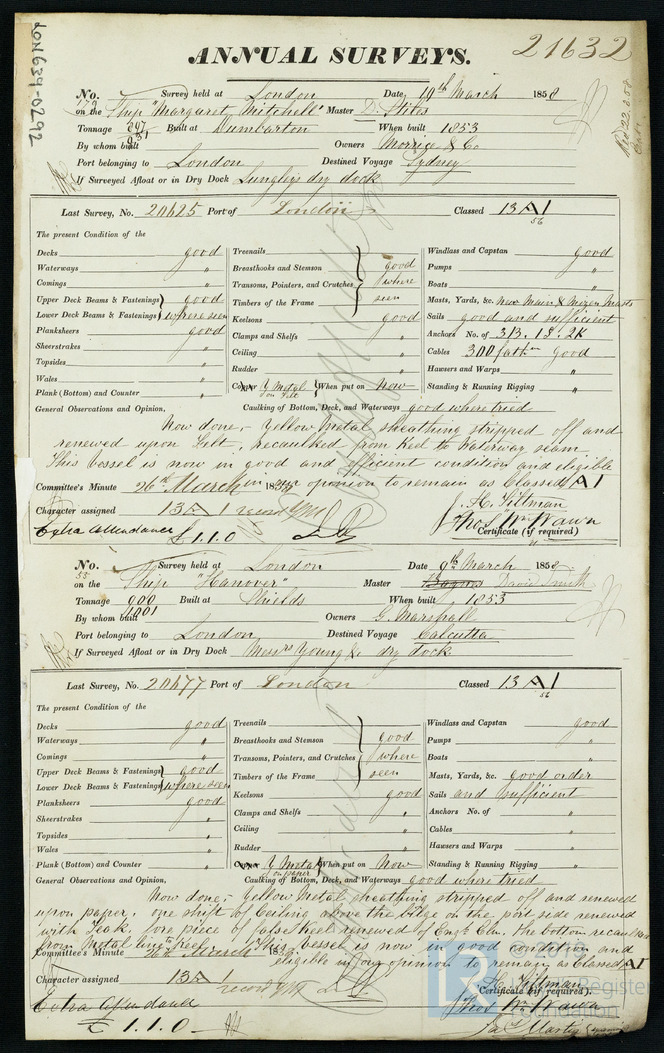 LON639-0292
ANNUAL SURVEYS.
21632
No. 179 Survey held at London Date 19th March 1858
on the Ship "Margaret Mitchell" Master D. Stiles
Tonnage Built at Dumbarton When built 1853
By whom built Owners Morrice & Co
Port belonging to London Destined Voyage Sydney
If Surveyed Afloat or in Dry Dock Lungley's dry dock
Last Survey, No. 20625 Port of London Classed 13 A1
56
The present Condition of the
Decks good
Waterways "
Comings "
Upper Deck Beams & Fastenings good
Lower Deck Beams & Fastenings where seen
Planksheers good
Sheerstrakes "
Topsides "
Wales "
Plank (Bottom) and Counter "
Treenails
Breasthooks and Stemson good
Transoms, Pointers, and Crutches where
Timbers of the Frame seen
Keelsons good
Clamps and Shelfs "
Ceiling "
Rudder "
Copper Y Metal on Felt When put on Now
Windlass and Capstan good
Pumps "
Boats "
Masts, Yards, &c. new Main & Mizen Masts
Sails good and sufficient
Anchors No. of 3B. 1S. 2K
Cables 300 fath. good
Hawsers and Warps "
Standing & Running Rigging "
General Observations and Opinion, Caulking of Bottom, Deck, and Waterways good where tried
Now done, Yellow Metal sheathing stripped off and
renewed upon Felt, recaulked from Keel to Waterway seam
This vessel is now in good and efficient condition and eligible
in our opinion to remain as Classed A1
Committee's Minute 26th March 185
Character assigned 13 A 1
J. H. Tillman
Thos. Wm. Wawn
Certificate (if required)
Extra Attendance £1.1.0
No. 55 Survey held at London Date 9th March 1858
on the Ship "Hanover" Master David Smith
Tonnage 900 1001 Built at Shields When built 1853
By whom built Owners G. Marshall
Port belonging to London Destined Voyage Calcutta
If Surveyed Afloat or in Dry Dock Messrs Young & dry dock
Last Survey, No. 20477 Port of London Classed 13 A1
56
The present Condition of the
Decks good
Waterways "
Comings "
Upper Deck Beams & Fastenings good
Lower Deck Beams & Fastenings where seen
Planksheers good
Sheerstrakes "
Topsides "
Wales "
Plank (Bottom) and Counter "
Treenails
Breasthooks and Stemson good
Transoms, Pointers, and Crutches where
Timbers of the Frame seen
Keelsons good
Clamps and Shelfs "
Ceiling "
Rudder "
Copper Y Metal on paper When put on Now
Windlass and Capstan good
Pumps "
Boats "
Masts, Yards, &c. good order
Sails and sufficient
Anchors No. of "
Cables "
Hawsers and Warps "
Standing & Running Rigging "
General Observations and Opinion, Caulking of Bottom, Deck, and Waterways good where tried
Now done, Yellow Metal sheathing stripped off and renewed
upon paper, one shift of Ceiling above the bilge on the port side renewed
with Teak, fore piece of false keel renewed of Engh. Elm. The bottom recaulked
from Metal line to keel. This vessel is now in good condition and
eligible in our opinion to remain as Classed A1
Committee's Minute March 185
Character assigned 13 A 1
H. Tillman
Certificate (if required).
Thos. Wm. Wawn
Extra Attendance
£ 1.1.0
LR
Lloyd's Register
Foundation